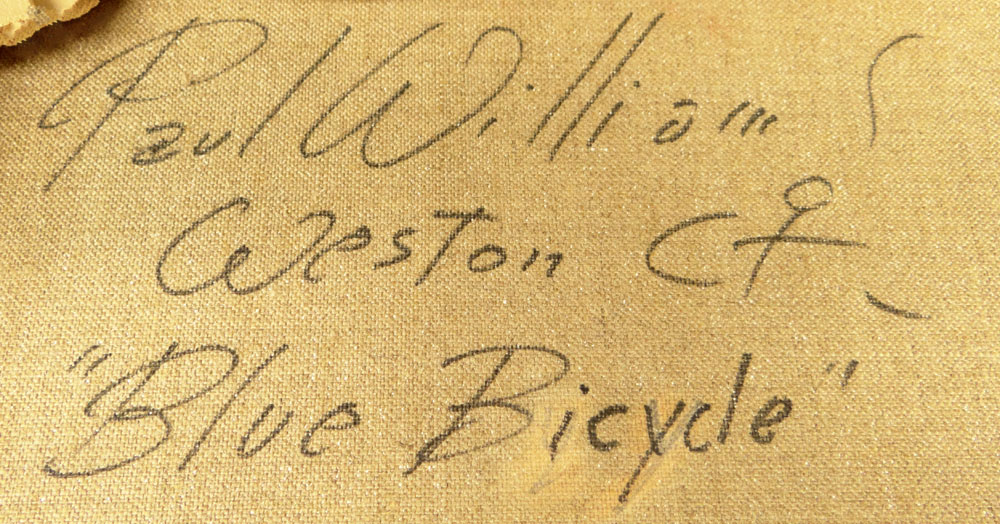 Paul Williams
Weston Ct.
"Blue Bicycle"